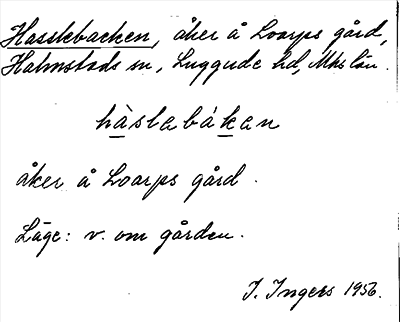 Hasslebacken, åker å Loarps gård,
Halmstads sn, Luggude hd, Mhs län.
hàslabákan
åker å Loarps gård.
Läge: v. om gården.
I. Ingers 1956.